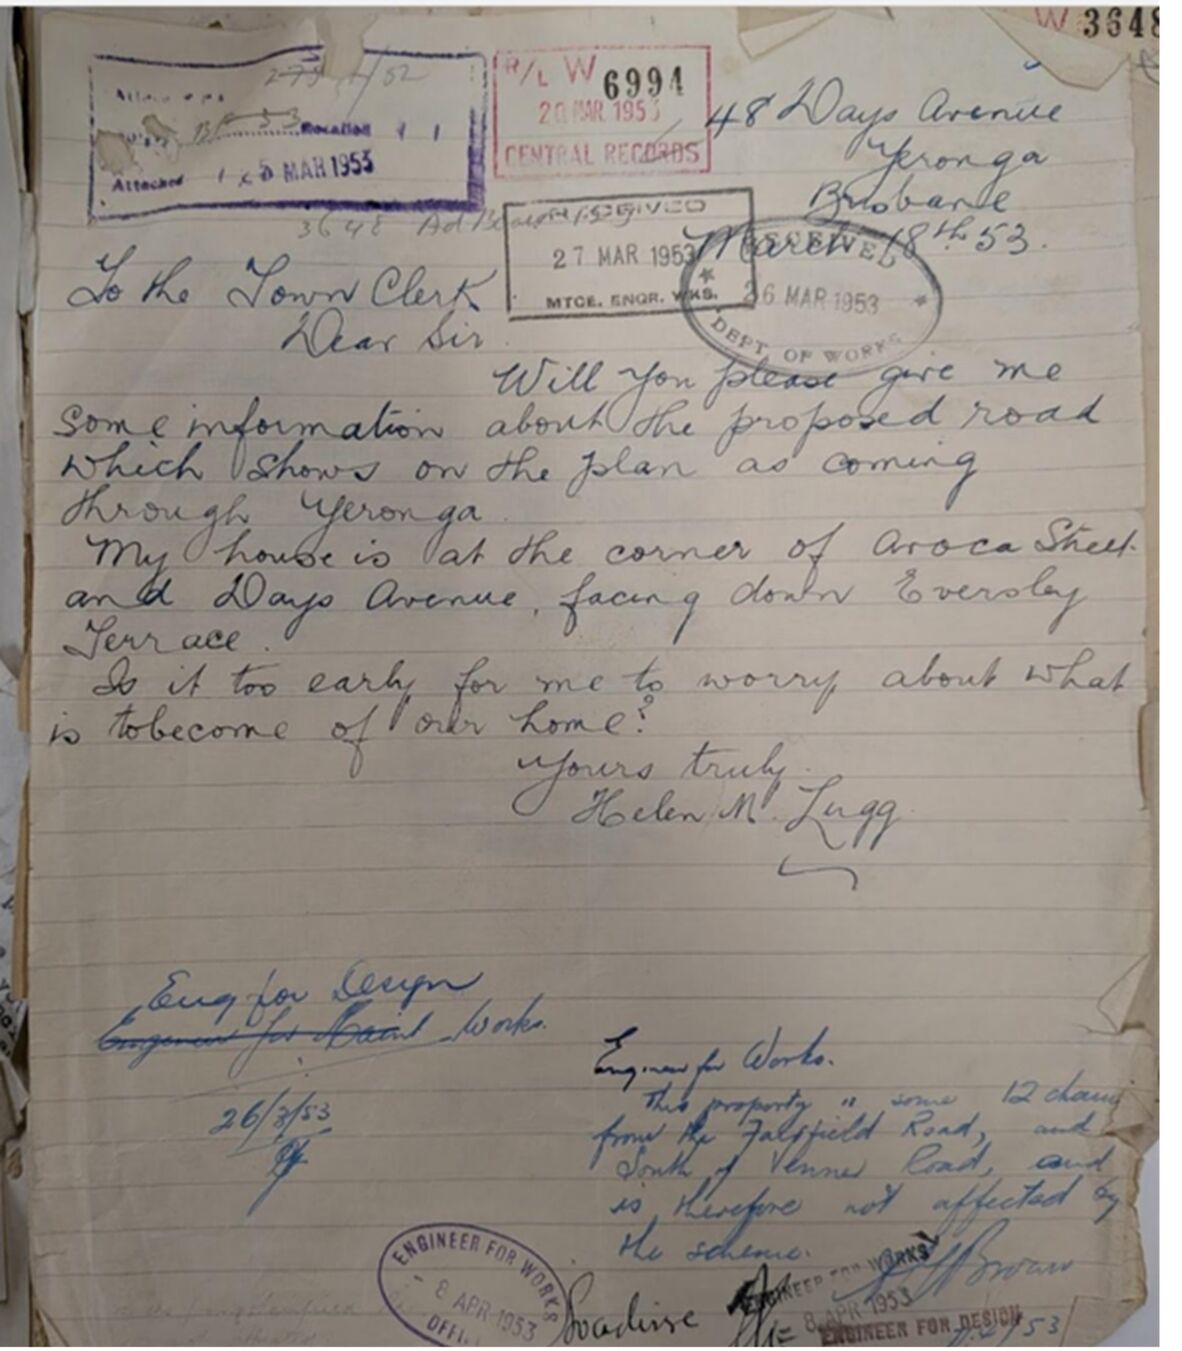 W 3648
R/L W 6994
20 MAR 1953
CENTRAL RECORDS
Location
Attached 5 MAR 1953
3648
48 Days Avenue
Yeronga
Brisbane
March 18th 53.
RECEIVED
27 MAR 1953
MTCE. ENGR. WKS.
RECEIVED
26 MAR 1953
DEPT. OF WORKS
To the Town Clerk
Dear Sir
Will you please give me
some information about the proposed road
which shows on the plan as coming
through Yeronga.
My house is at the corner of Aroca Street
and Days Avenue, facing down Eversley
Terrace.
Is it too early for me to worry about what
is tobecome of our home?
Yours truly.
Helen M. Lugg
Eng for Design
Engineer for Maint Works.
26/3/53
Engineer for Works.
This property is some 12 chains
from the Fairfield Road, and
South of Venner Road, and
is therefore not affected by
the scheme.
Brown
ENGINEER FOR WORKS
8 APR 1953
ENGINEER FOR WORKS
8 APR 1953
ENGINEER FOR DESIGN